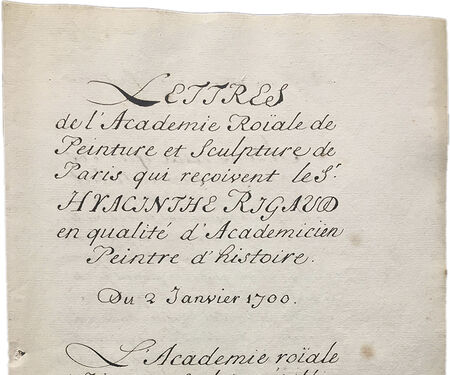 LETTRES
de l'Academie Roïale de
Peinture et Sculpture de
Paris qui reçoivent le Sr.
HYACINTHE RIGAUD
en qualité d'Academicien
Peintre d'histoire.
Du 2 Janvier 1700.
L'Academie roïale